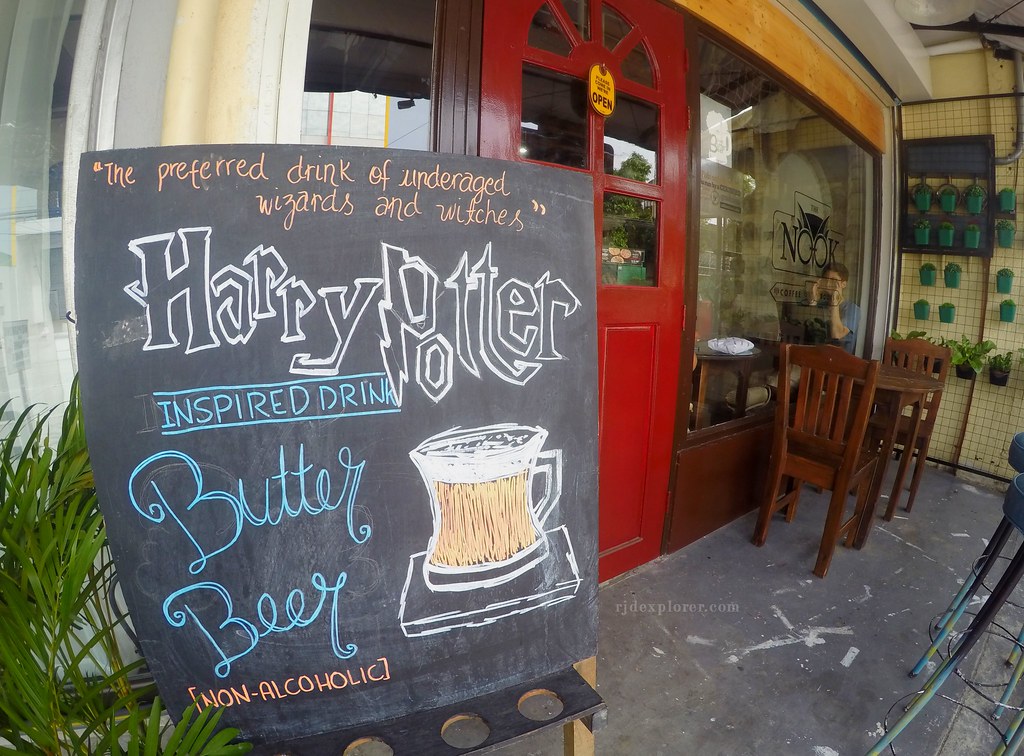 "The preferred drink of underaged
wizards and witches"
Harry Potter
INSPIRED DRINK
Butter
Beer
[NON-ALCOHOLIC]
OPEN
NOOK
COFFEE
rjdexplorer.com